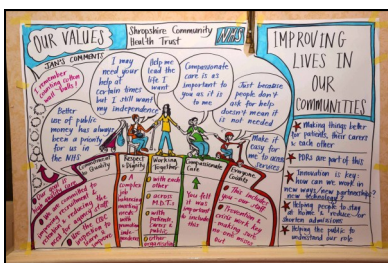 OUR VALUES
Shropshire Community
Health Trust
NHS
JAN'S COMMENTS
I remember
counting cotton
wool balls!
Better
use of public
money has always
been a priority
for us in
the NHS
I may
need your
help at
certain times
but I still want
my independence
Help me
lead the
life I
want
Compassionate
care is as
important to
you as it is
to me
Just because
people don't
ask for help
doesn't mean it
is not needed
Make it
easy for
me to access
services
Commitment to Quality
Respect
& Dignity
Working
Together
Compassionate Care
Everyone Counts
A
complex
&
meeting
needs
with
with each
other
across
M.D.T.s
with
patients,
carers & public
other
organisations
You felt
it was
important to
include this
This includes
you - our staff
Prevention &
crisis work key
making sure
no one misses
out
We are committed
to
recruitment &
reducing the
need for agency staff
Use the CQC
IMPROVING
LIVES IN
OUR
COMMUNITIES
Making things better
for patients, their carers
& each other
PDRs are part of this
Innovation is key:
how can we work in
new ways/new partnerships?
new technology?
Helping people to stay
at home & reduce or
shorten admissions
Helping the public to
understand our role